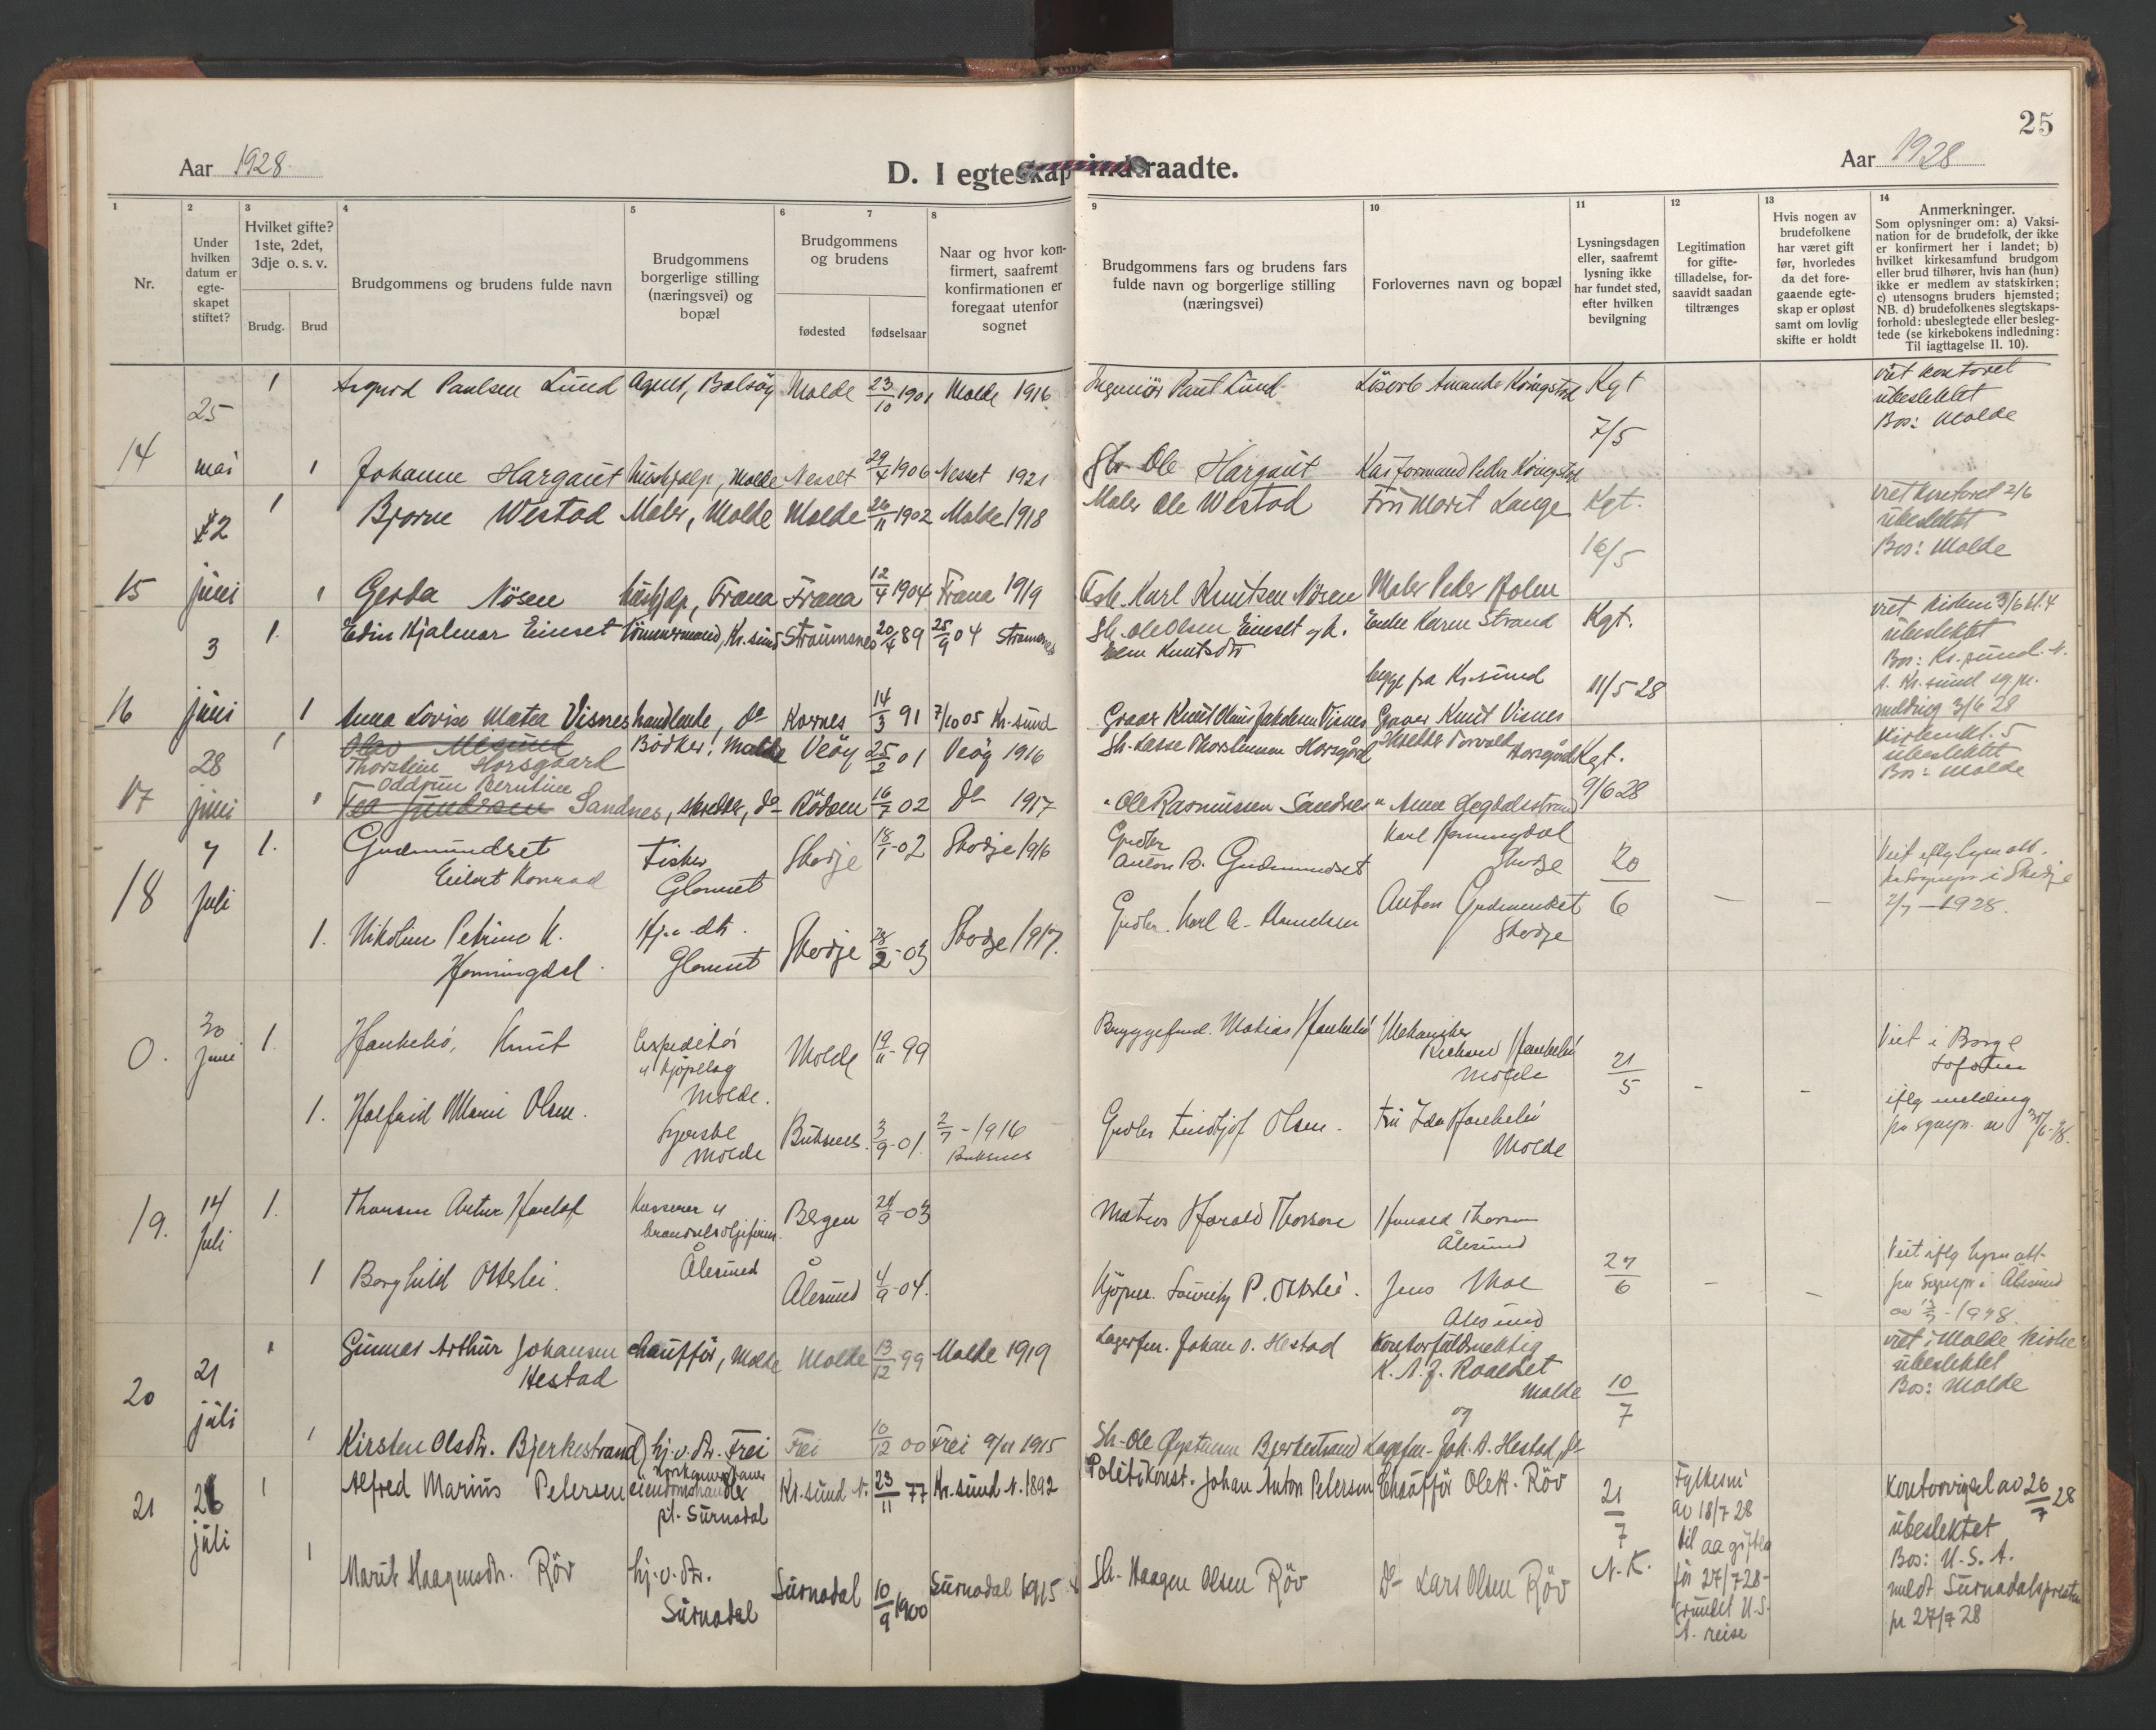 25
Aar 1928
D. I egteskap indtraadte.
Aar 1928
1
Nr.
2
Under
hvilken
datum er
egte-
skapet
stiftet?
3
Hvilket gifte?
1ste, 2det,
3dje o. s. v.
Brudg.
Brud
4
Brudgommens og brudens fulde navn
5
Brudgommens
borgerlige stilling
(næringsvei) og
bopæl
6
7
Brudgommens
og brudens
fødested
fødselsaar
8
Naar og hvor kon-
firmert, saafremt
konfirmationen er
foregaat utenfor
sognet
9
Brudgommens fars og brudens fars
fulde navn og borgerlige stilling
(næringsvei)
10
Forlovernes navn og bopæl
11
Lysningsdagen
eller, saafremt
lysning ikke
har fundet sted,
efter hvilken
bevilgning
12
Legitimation
for gifte-
tilladelse, for-
saavidt saadan
tiltrænges
13
Hvis nogen av
brudefolkene
har været gift
før, hvorledes
da det fore-
gaaende egte-
skap er opløst
samt om lovlig
skifte er holdt
14
Anmerkninger.
Som oplysninger om: a) Vaksi-
nation for de brudefolk, der ikke
er konfirmert her i landet; b)
hvilket kirkesamfund brudgom
eller brud tilhører, hvis han (hun)
ikke er medlem av statskirken;
c) utensogns bruders hjemsted;
NB. d) brudefolkenes slegtskaps-
forhold: ubeslegtede eller besleg-
tede (se kirkebokens indledning:
Til iagttagelse II. 10).
14
25
mai
1 Sigurd Paulsen Lund Agent, Bolsøy Molde 23/10 1901 Molde 1916 Ingeniör Paul Lund Amanda Kringstad Kgt
7/5
viet kontoret
ubeslektet
Bos: Molde
1 Johanne Hargaut hushjelp, Molde Nesset 29/4 1906 Nesset 1921 Gbr. Ole Hargaut Peder Kringstad
15
2
juni
1 Bjarne Westad Maler, Molde Molde 26/11 1902 Molde 1918 Maler Ole Westad Fru Marit Lange Kgt.
16/5
viet kontoret 2/6
ubeslektet
Bos: Molde
1 Gerda Nøsen hushjelp, Fræna Fræna 12/4 1904 Fræna 1919 Fisk. Karl Knutsen Nøsen Maler Peder Holm
16
3
juni
1 Edin Hjalmar Einset tömmermand, Kr.sund Straumsnes 20/4 89 25/9 04 Straumsnes Gbr. Ole Olsen Einset og h.
Elen Knutsdtr
Enke Karen Strand
begge fra Kr.sund
Kgt.
11/5 28
viet kirken 3/6 kl. 4
ubeslektet
Bos: Kr.sund. N.
meldning 3/6 28
1 Anna Lovise Matea Visnes handlende, do Kornes 14/3 91 7/10 05 Kr.sund Graver Knut Olaus Jakobsen Visnes Graver Knut Visnes
17
28
juni
1 Thorstein Horsgaard Bödker, Molde Veöy 25/2 01 Veöy 1916 Gbr. Lasse Thorsteinsen Horsgård Torvald Horsgård Kgt.
9/6 28
ubeslektet
Bos: Molde
1 Oddrun Berntine
Sandnes, do Rödven 16/7 02 do 1917 " Ole Rasmussen Sandnes " Anne
18
7
Juli
1. Gudmundset
Eilert Konrad
Fisker
Glomset
Skodje 18/1-02 Skodje 1916 Gbr
Anton B. Gudmundset
Karl Hemmingdal
Skodje
20/6
Viet iflg lysn att.
fra sognepr i Skodje
2/7 - 1928.
1. Nikoline Petrine K.
Hemmingdal
Glomset
Skodje 28/2-03 Skodje 1917. Anton Gudmundset
Skodje
0.
30
Juni
1. Haukebö, Knut Expeditör
Kjöpelag
Molde.
Molde 19/11-99 Bryggefmd. Matias Haukebö Mekaniker
Richard Haukebö
Molde
21/5
Viet i Borge
Lofoten
iflg melding
fra sognepr.
1. Halfrid Marie Olsen. Syerske
Molde
Buksnes 3/9-01. 2/7 - 1916
Buksnes
Fridtjof Olsen. Fru Ida Haukebö
Molde
19.
14
Juli
1. Thorsen Artur Harlof Kasserer
Ålesund
Bergen 24/9-03 Harald Thorsen Harald Thorsen
Ålesund
27/6
Viet iflg lysn att
fra sognepr i Ålesund
1 Borghild Otterlei. Ålesund 4/9-04. Kjöpm. Lauritz P. Otterlei. Jens Moe
Ålesund
20
21
juli
1 Gunnar Arthur Johansen
Hestad
chaufför, Molde Molde 13/12 99 Molde 1919 Lagerfm. Johan O. Hestad Kontorfuldmektig
K. A. J. Roaldset
Molde
og
10/7
viet i Molde kirke
ubeslektet
Bos: Molde
1 Kirsten Olsdtr. Bjerkestrand, hj.v.dtr. Frei Frei 10/12 00 Frei 9/11 1915 Gbr. Ole Øysteinsen Bjerkestrand Lagerfm. Joh. A. Hestad, do
21
26
juli
1 Alfred Marius Petersen
eiendomshandler
pt. Surnadal
Kr.sund N. 23/11 77 Kr.sund N. 1892 Politikonst. Johan Anton Petersen Chaufför Ole H. Röv 21/7
N.K.
Fylkesni
av 18/7 28
til aa gifte
för 27/7 28
grundet U.S.
A. reise
Kontorvigsel av 26/7 28
ubeslektet
Bos: U.S.A.
meldt Surnadalspresten
pr 27/7 28
1 Marit Haagensdtr. Röv hj.v.dtr.
Surnadal
Surnadal 10/9 1900 Surnadal 1915 Gbr. Haagen Olsen Röv do Lars Olsen Röv